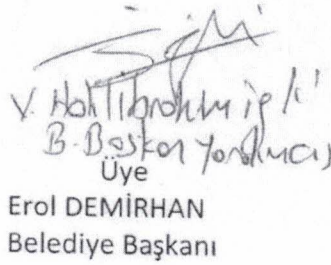 V. Halil İbrahim işli
B. Başkan Yardımcısı
Üye
Erol DEMİRHAN
Belediye Başkanı